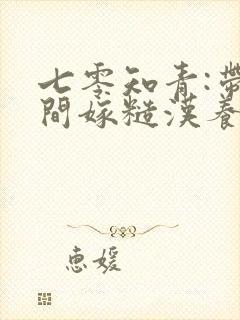 七零知青:帶
間嫁糙漢養
惠媛